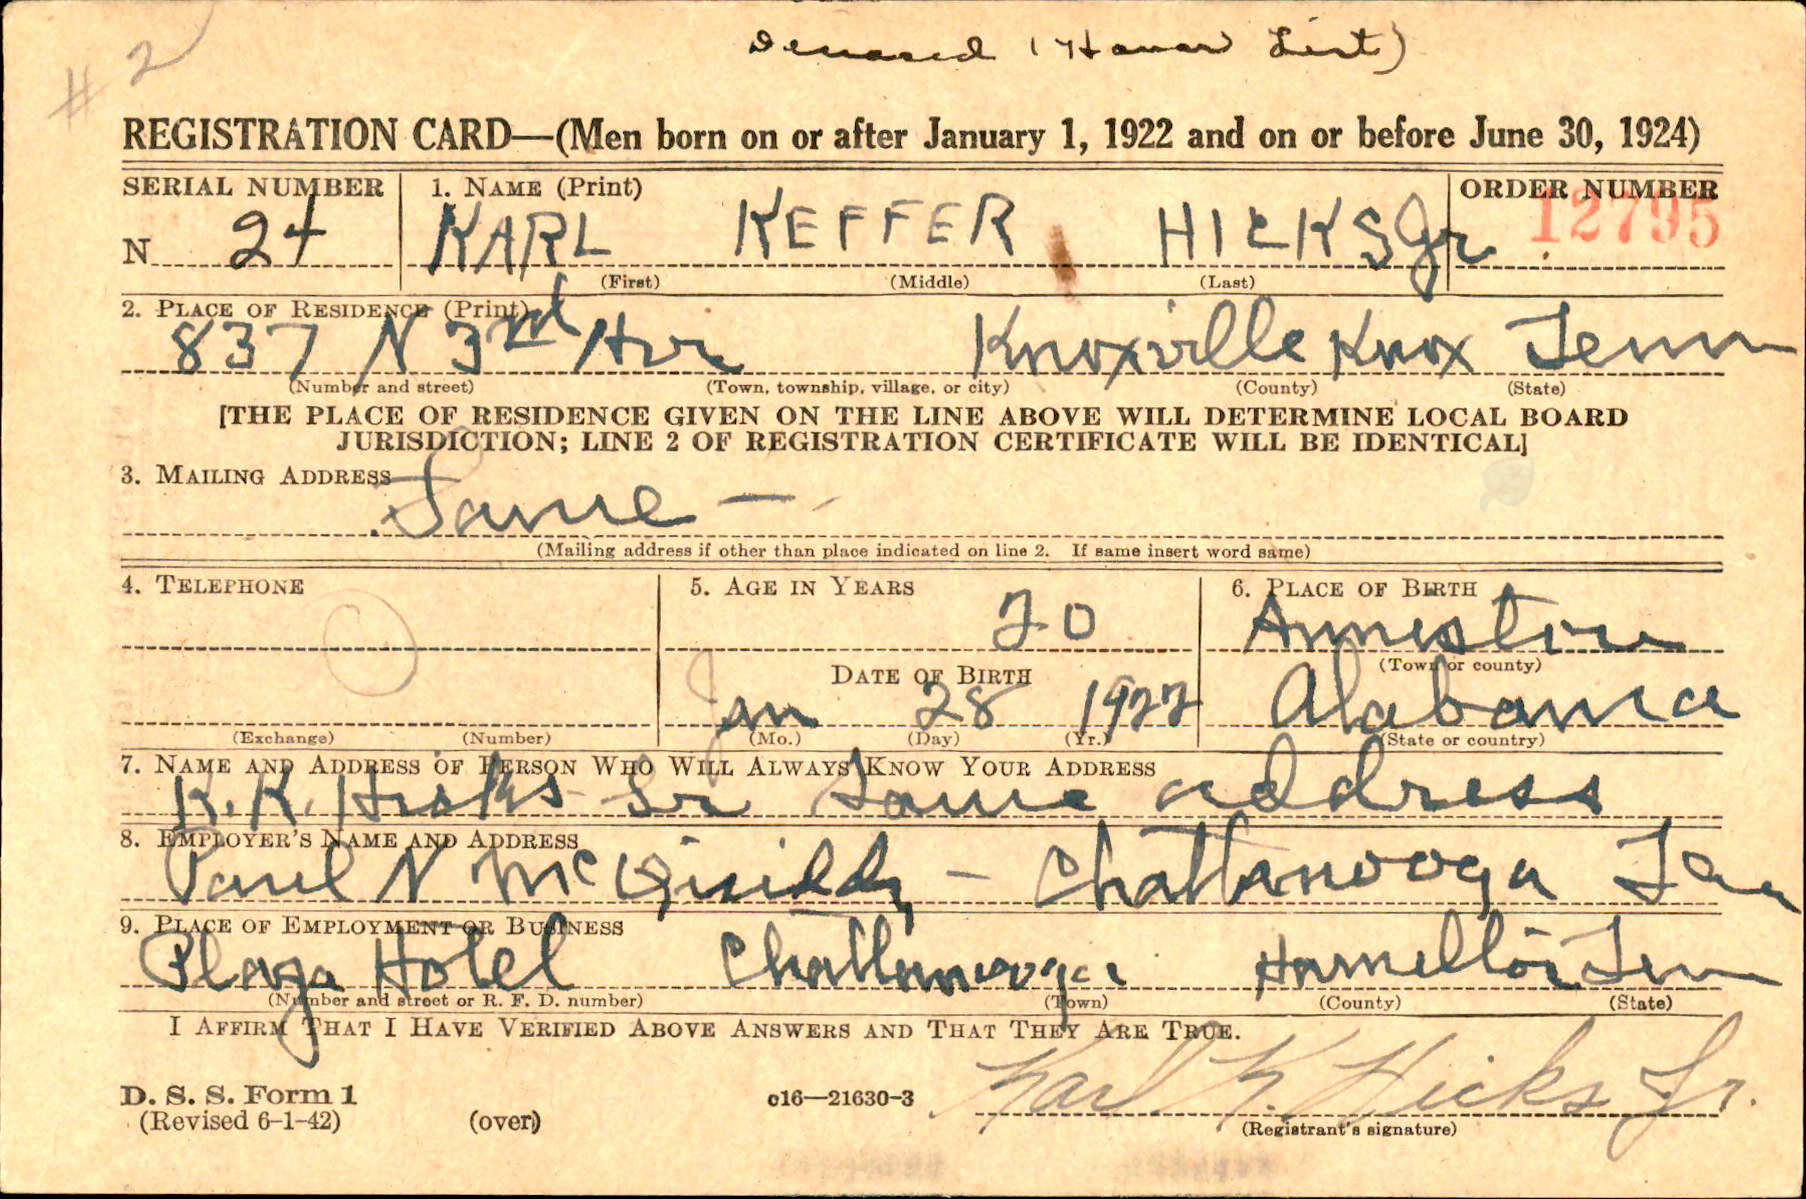 # 2
Deceased (Honor List)
REGISTRATION CARD—(Men born on or after January 1, 1922 and on or before June 30, 1924)
SERIAL NUMBER 1. NAME (Print) ORDER NUMBER
N 24 KARL KEFFER HICKS Jr 12795
(First) (Middle) (Last)
2. PLACE OF RESIDENCE (Print)
837 N 3rd Ave Knoxville Knox Tenn
(Number and street) (Town, township, village, or city) (County) (State)
[THE PLACE OF RESIDENCE GIVEN ON THE LINE ABOVE WILL DETERMINE LOCAL BOARD
JURISDICTION; LINE 2 OF REGISTRATION CERTIFICATE WILL BE IDENTICAL]
3. MAILING ADDRESS
Same —
(Mailing address if other than place indicated on line 2. If same insert word same)
4. TELEPHONE 5. AGE IN YEARS 6. PLACE OF BIRTH
20 Anniston
DATE OF BIRTH (Town or county)
Jan 28 1922 Alabama
(Exchange) (Number) (Mo.) (Day) (Yr.) (State or country)
7. NAME AND ADDRESS OF PERSON WHO WILL ALWAYS KNOW YOUR ADDRESS
K. K. Hicks Sr Same address
8. EMPLOYER'S NAME AND ADDRESS
Paul N McQuiddy — Chattanooga Tenn
9. PLACE OF EMPLOYMENT OR BUSINESS
Plaza Hotel Chattanooga Hamilton Tenn
(Number and street or R. F. D. number) (Town) (County) (State)
I AFFIRM THAT I HAVE VERIFIED ABOVE ANSWERS AND THAT THEY ARE TRUE.
D. S. S. Form 1
(Revised 6-1-42) (over) c16—21630-3 Karl K. Hicks Jr.
(Registrant's signature)